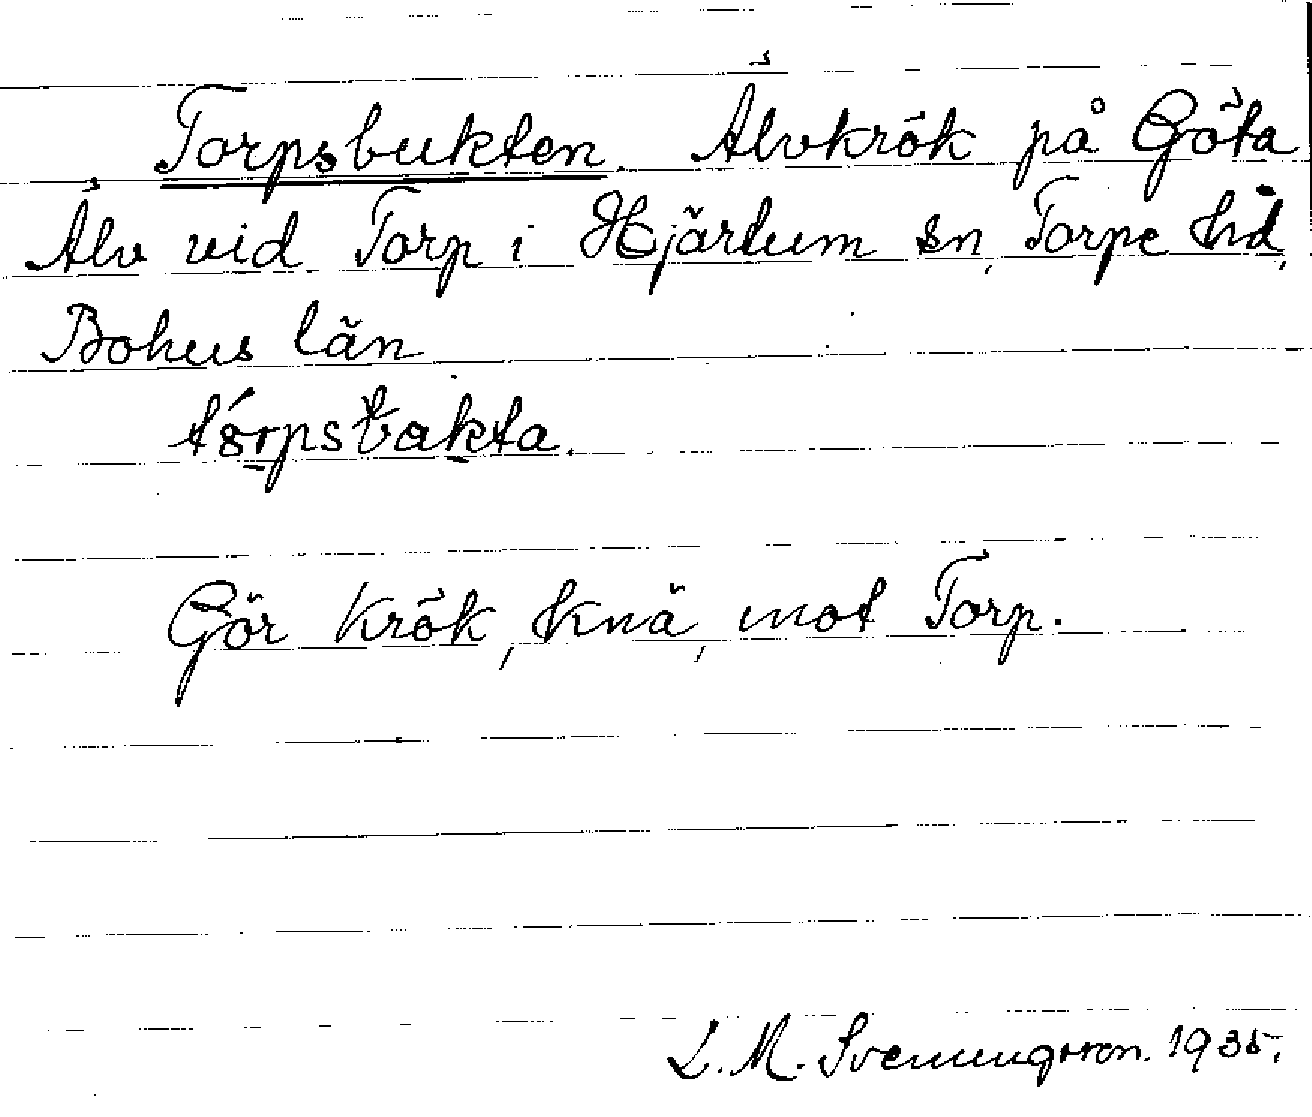 Torpsbukten. Älvkrök på Göta
Älv vid Torp i Hjärtum sn, Torpe hd,
Bohus län
Gör krök, knä, mot Torp.
L. M. Svenungsson. 1935.